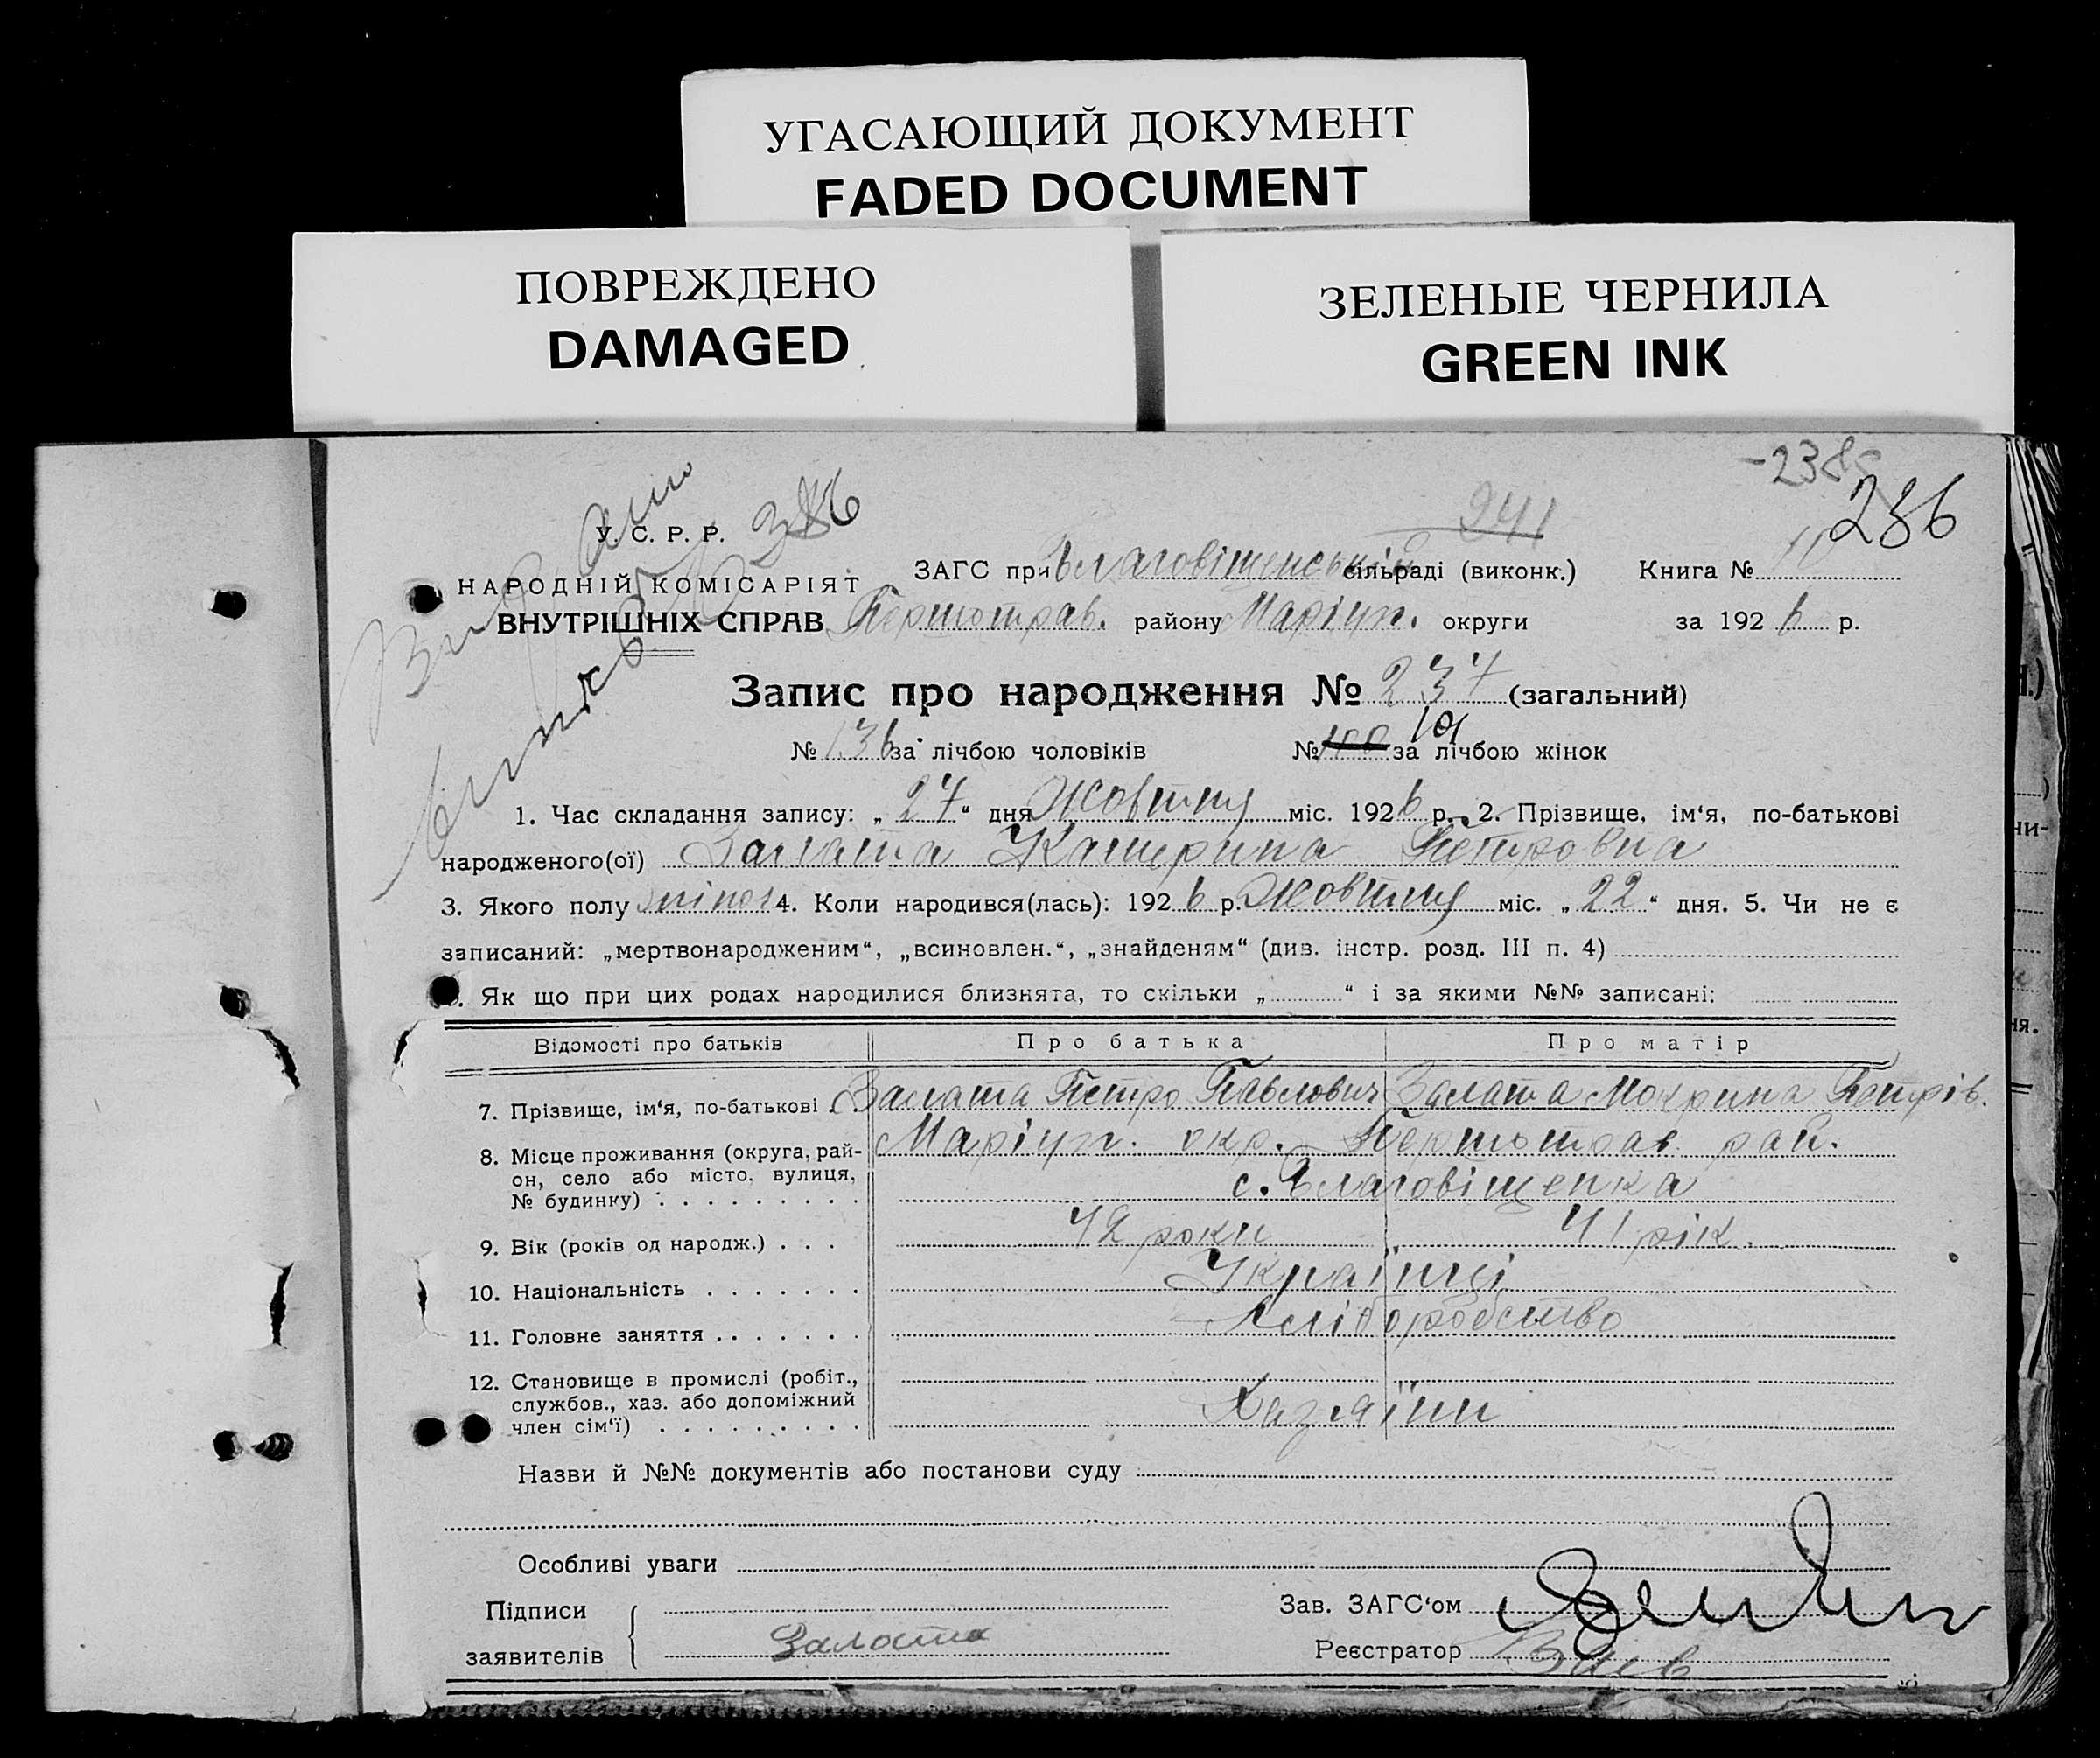 УГАСАЮЩИЙ ДОКУМЕНТ
FADED DOCUMENT
ПОВРЕЖДЕНО
DAMAGED
ЗЕЛЕНЫЕ ЧЕРНИЛА
GREEN INK
-238
286
241
386
У. С. Р. Р.
НАРОДНІЙ КОМІСАРІЯТ
ВНУТРІШНІХ СПРАВ
ЗАГС при Благовіщенській сільраді (виконк.) Книга №
Першотрав. району Маріуп. округи за 1926 р.
Запис про народження № 237 (загальний)
№ 136 за лічбою чоловіків № 100 101 за лічбою жінок
1. Час складання запису: „27“ дня Жовтня міс. 1926 р. 2. Прізвище, ім‘я, по-батькові
народженого(ої) Залата Катерина Петровна
3. Якого полу жіноч 4. Коли народився(лась): 1926 р. Жовтня міс. „22“ дня. 5. Чи не є
записаний: „мертвонародженим“, „всиновлен.“, „знайденям“ (див. інстр. розд. III п. 4)
. Як що при цих родах народилися близнята, то скільки „ “ і за якими №№ записані:
Відомості про батьків Про батька Про матір
7. Прізвище, ім‘я, по-батькові . . Залата Петро Павлович Залата Мокрина Петрів.
8. Місце проживання (округа, рай- Маріуп. окр. Першотрав. рай.
он, село або місто, вулиця, с. Благовіщенка
№ будинку) . . . . . . . . .
9. Вік (років од народж.) . . . 42 роки 41 рік.
10. Національність . . . . . . . Українці
11. Головне заняття . . . . . . . Хліборобство
12. Становище в промислі (робіт.,
службов., хаз. або допоміжний Хазяїни
член сім‘ї) . . . . . . . . .
Назви й №№ документів або постанови суду
Особливі уваги
Підписи
заявителів Залата
Зав. ЗАГС‘ом
Реєстратор